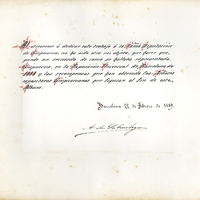 Al atreverme á dedicar este trabajo á la Exma Diputación
de Guipuzcoa, no ha sido otro mi objeto, que hacer que,
quede un recuerdo de como se hallaba representada
Guipuzcoa, en la Exposición Universal de Barcelona de
1888 y las recompensas que han obtenido los Señores
expositores Guipuzcoanos que figuran al fin de este
Album.
Barcelona 22 de Febrero de 1889.